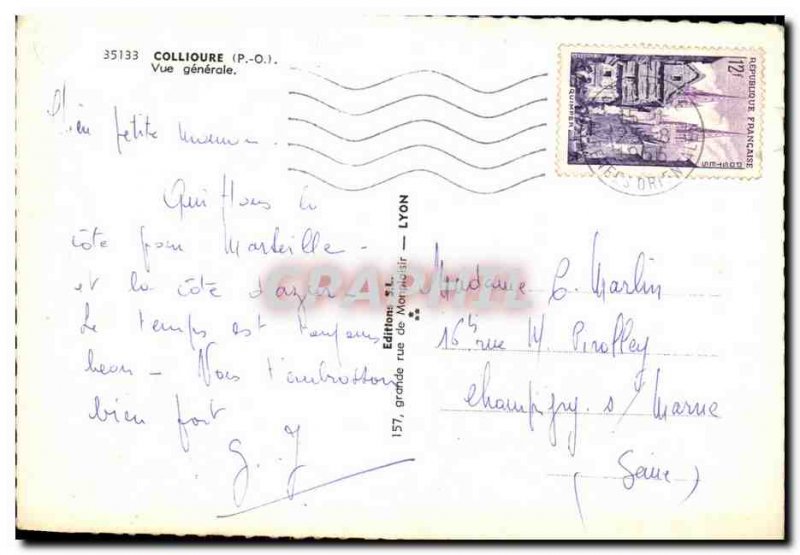 35133 COLLIOURE (P.-O.).
Vue générale.
petite maman -
Quittons la
côte pour Marseille -
et la côte d'azur -
Le temps est toujours
beau - Nous t'embrassons
bien fort
G. J
Editions S.L.
157, grande rue de Montplaisir — LYON
RÉPUBLIQUE FRANÇAISE
12f
POSTES
QUIMPER
GRAPHIL
Madame C. Marlin
16 rue M.
Champigny s/ Marne
(Seine)